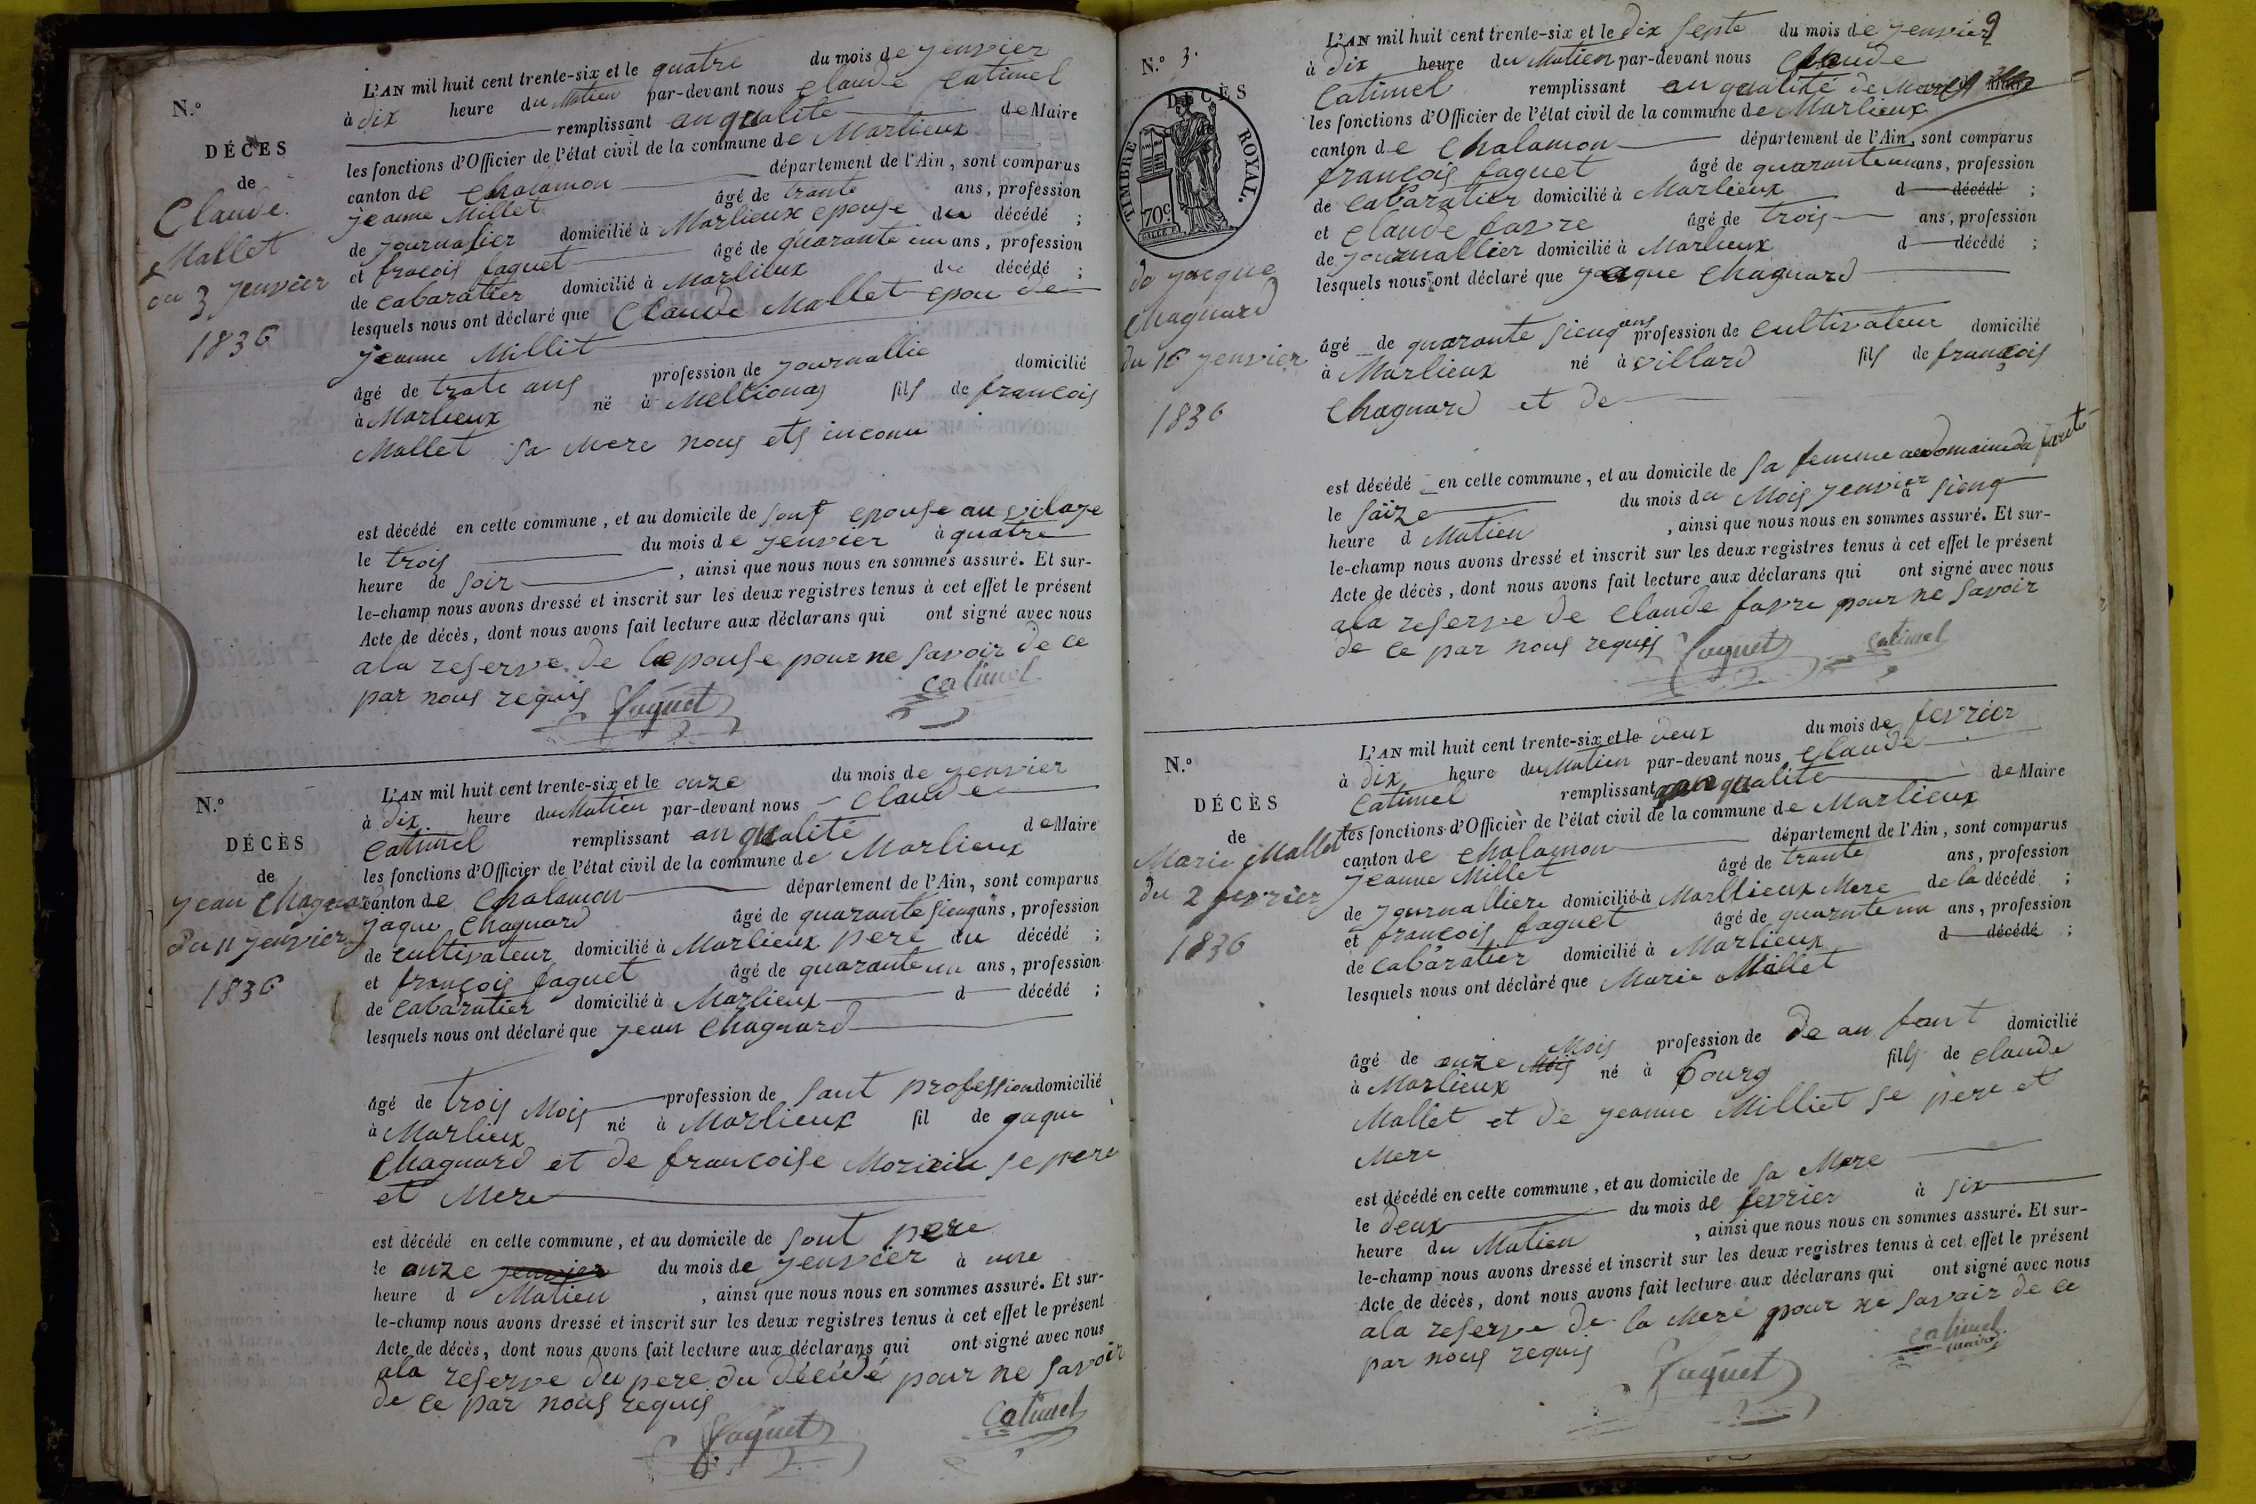 N.º
DÉCÈS
de
Claude
Mallet
du 3 jenvier
1836
L'AN mil huit cent trente-six et le quatre du mois de jenvier
à dix heure du Matien par-devant nous Claude Catimel
remplissant an qualité de Maire
les fonctions d'Officier de l'état civil de la commune de Marlieux
canton de Chalamon département de l'Ain, sont comparus
jeanne Millet âgé de trante ans, profession
de journalier domicilié à Marlieux epouse du décédé ;
et fracois faquet âgé de quarante un ans, profession
de Cabaratier domicilié à Marlieux du décédé ;
lesquels nous ont déclaré que Claude Mallet epou de
jeanne Millit
âgé de trate ans profession de journallie domicilié
à Marlieux né à Mellionas fils de francois
Mallet sa mere nous ets inconu
est décédé en cette commune, et au domicile de sont epouse au vilage
le trois du mois de jenvier à quatre
heure de soir , ainsi que nous nous en sommes assuré. Et sur-
le-champ nous avons dressé et inscrit sur les deux registres tenus à cet effet le présent
Acte de décès, dont nous avons fait lecture aux déclarans qui ont signé avec nous
ala reserve de lepouse pour ne savoir de ce
par nous requis faquet catimel
N.º
DÉCÈS
de
jean Chagnard
du 11 jenvier
1836
L'AN mil huit cent trente-six et le onze du mois de jenvier
à dix heure du Matien par-devant nous Claude
Catimel remplissant an qualité de Maire
les fonctions d'Officier de l'état civil de la commune de Marlieux
canton de Chalamon département de l'Ain, sont comparus
jaque Chagnard âgé de quarante sienq ans, profession
de cultivateur domicilié à Marlieux pere du décédé ;
et françois faquet âgé de quarante un ans, profession
de Cabaratier domicilié à Marlieux d décédé ;
lesquels nous ont déclaré que jean Chagnard
âgé de trois Mois profession de sant profession domicilié
à Marlieux né à Marlieux fil de gaque
Chagnard et de francoise se pere
et Mere
est décédé en cette commune, et au domicile de sont pere
le onze jenvier du mois de jenvier à une
heure d Matien , ainsi que nous nous en sommes assuré. Et sur-
le-champ nous avons dressé et inscrit sur les deux registres tenus à cet effet le présent
Acte de décès, dont nous avons fait lecture aux déclarans qui ont signé avec nous
ala reserve du pere du décédé pour ne savoir
de ce par nous requis
faquet Catimel
9
N.º 3.
DÉCÈS
de
TIMBRE ROYAL.
70c.
de jacque
Chagnard
du 16 jenvier
1836
L'AN mil huit cent trente-six et le dix septe du mois de jenvier
à dix heure du Matien par-devant nous Claude
Catimel remplissant an qualité de Maire
les fonctions d'Officier de l'état civil de la commune de Marlieux
canton de Chalamon département de l'Ain, sont comparus
françois faquet âgé de quarante un ans, profession
de Cabaratier domicilié à Marlieux d décédé ;
et Claude favre âgé de trois ans, profession
de journallier domicilié à Marlieux d décédé ;
lesquels nous ont déclaré que jaque Chagnard
âgé de quarante sienq ans profession de Cultivateur domicilié
à Marlieux né à villard fils de françois
Chagnard et de
est décédé en cette commune, et au domicile de sa femme
le saize du mois du Mois jenvier à sienq
heure d Matien , ainsi que nous nous en sommes assuré. Et sur-
le-champ nous avons dressé et inscrit sur les deux registres tenus à cet effet le présent
Acte de décès, dont nous avons fait lecture aux déclarans qui ont signé avec nous
ala reserve de Claude favre pour ne savoir
de ce par nous requis faquet Catimel
N.º
DÉCÈS
de
Marie Mallet
du 2 fevrier
1836
L'AN mil huit cent trente-six et le deux du mois de fevrier
à dix heure du Matien par-devant nous Claude
Catimel remplissant an qualité de Maire
les fonctions d'Officier de l'état civil de la commune de Marlieux
canton de Chalamon département de l'Ain, sont comparus
jeanne Millet âgé de trante ans, profession
de journalliere domicilié à Marllieux Mere de la décédé ;
et françois faquet âgé de quarante un ans, profession
de Cabaratier domicilié à Marlieux d décédé ;
lesquels nous ont déclaré que Marie Mallet
âgé de onze Mois Mois profession de de an fant domicilié
à Marlieux né à Bourg fille de Claude
Mallet et de jeanne Milliet se pere et
Mere
est décédé en cette commune, et au domicile de sa Mere
le deux du mois de fevrier à six
heure du Matien , ainsi que nous nous en sommes assuré. Et sur-
le-champ nous avons dressé et inscrit sur les deux registres tenus à cet effet le présent
Acte de décès, dont nous avons fait lecture aux déclarans qui ont signé avec nous
ala reserve de la Mere pour ne savoir de ce
par nous requis faquet catimel
maire